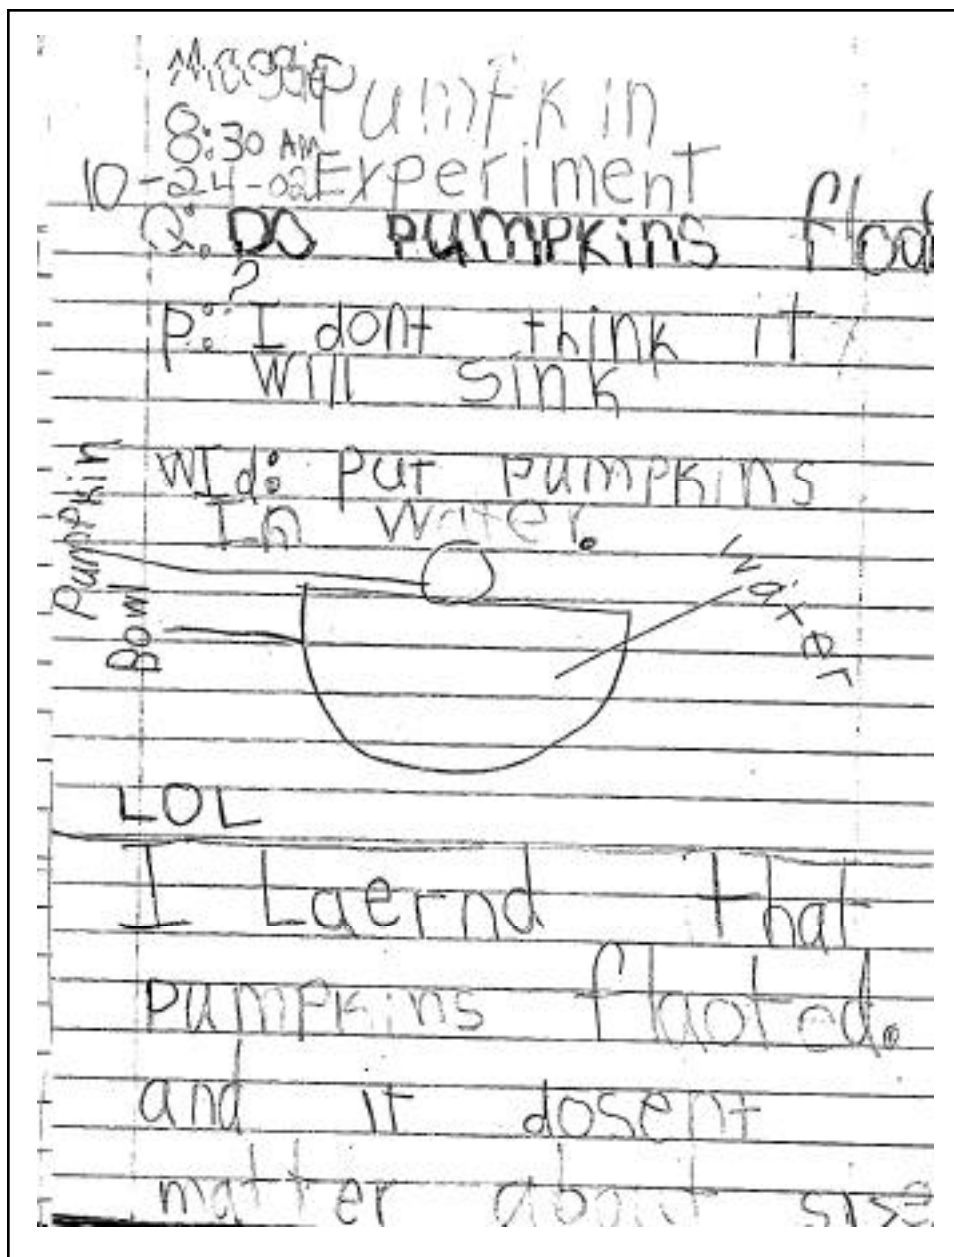 Maggie
Pumfkin
8:30 AM
Experiment
10-24-02
Q: Do pumpkins
?
P: I dont think it
will sink
WId: put pumpkins
In water.
Pumpkin
Bowl
Water
LOL
I Laernd that
pumpkins flaoted.
and it dosent
matter about sise